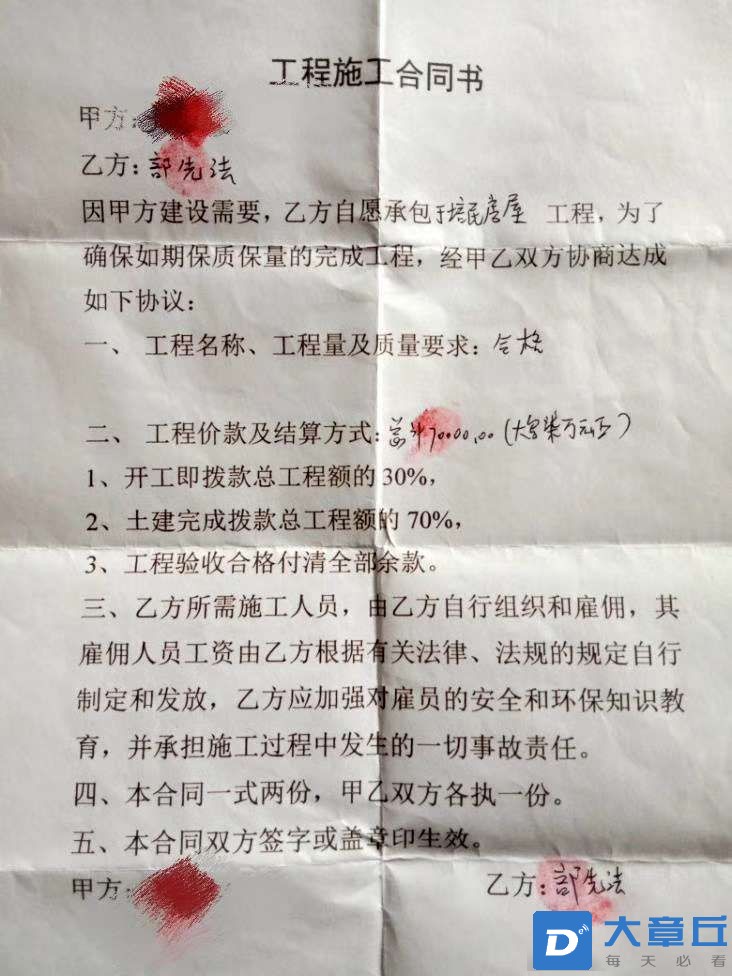 工程施工合同书
甲方:
乙方:部先法
因甲方建设需要，乙方自愿承包于培民房屋 工程，为了
确保如期保质保量的完成工程，经甲乙双方协商达成
如下协议：
一、 工程名称、工程量及质量要求：合格
二、 工程价款及结算方式：总计70000.00(大写柒万元正)
1、开工即拨款总工程额的30%，
2、土建完成拨款总工程额的70%，
3、工程验收合格付清全部余款。
三、乙方所需施工人员，由乙方自行组织和雇佣，其
雇佣人员工资由乙方根据有关法律、法规的规定自行
制定和发放，乙方应加强对雇员的安全和环保知识教
育，并承担施工过程中发生的一切事故责任。
四、本合同一式两份，甲乙双方各执一份。
五、本合同双方签字或盖章印生效。
甲方: 乙方:部先法
大章丘
每天必看